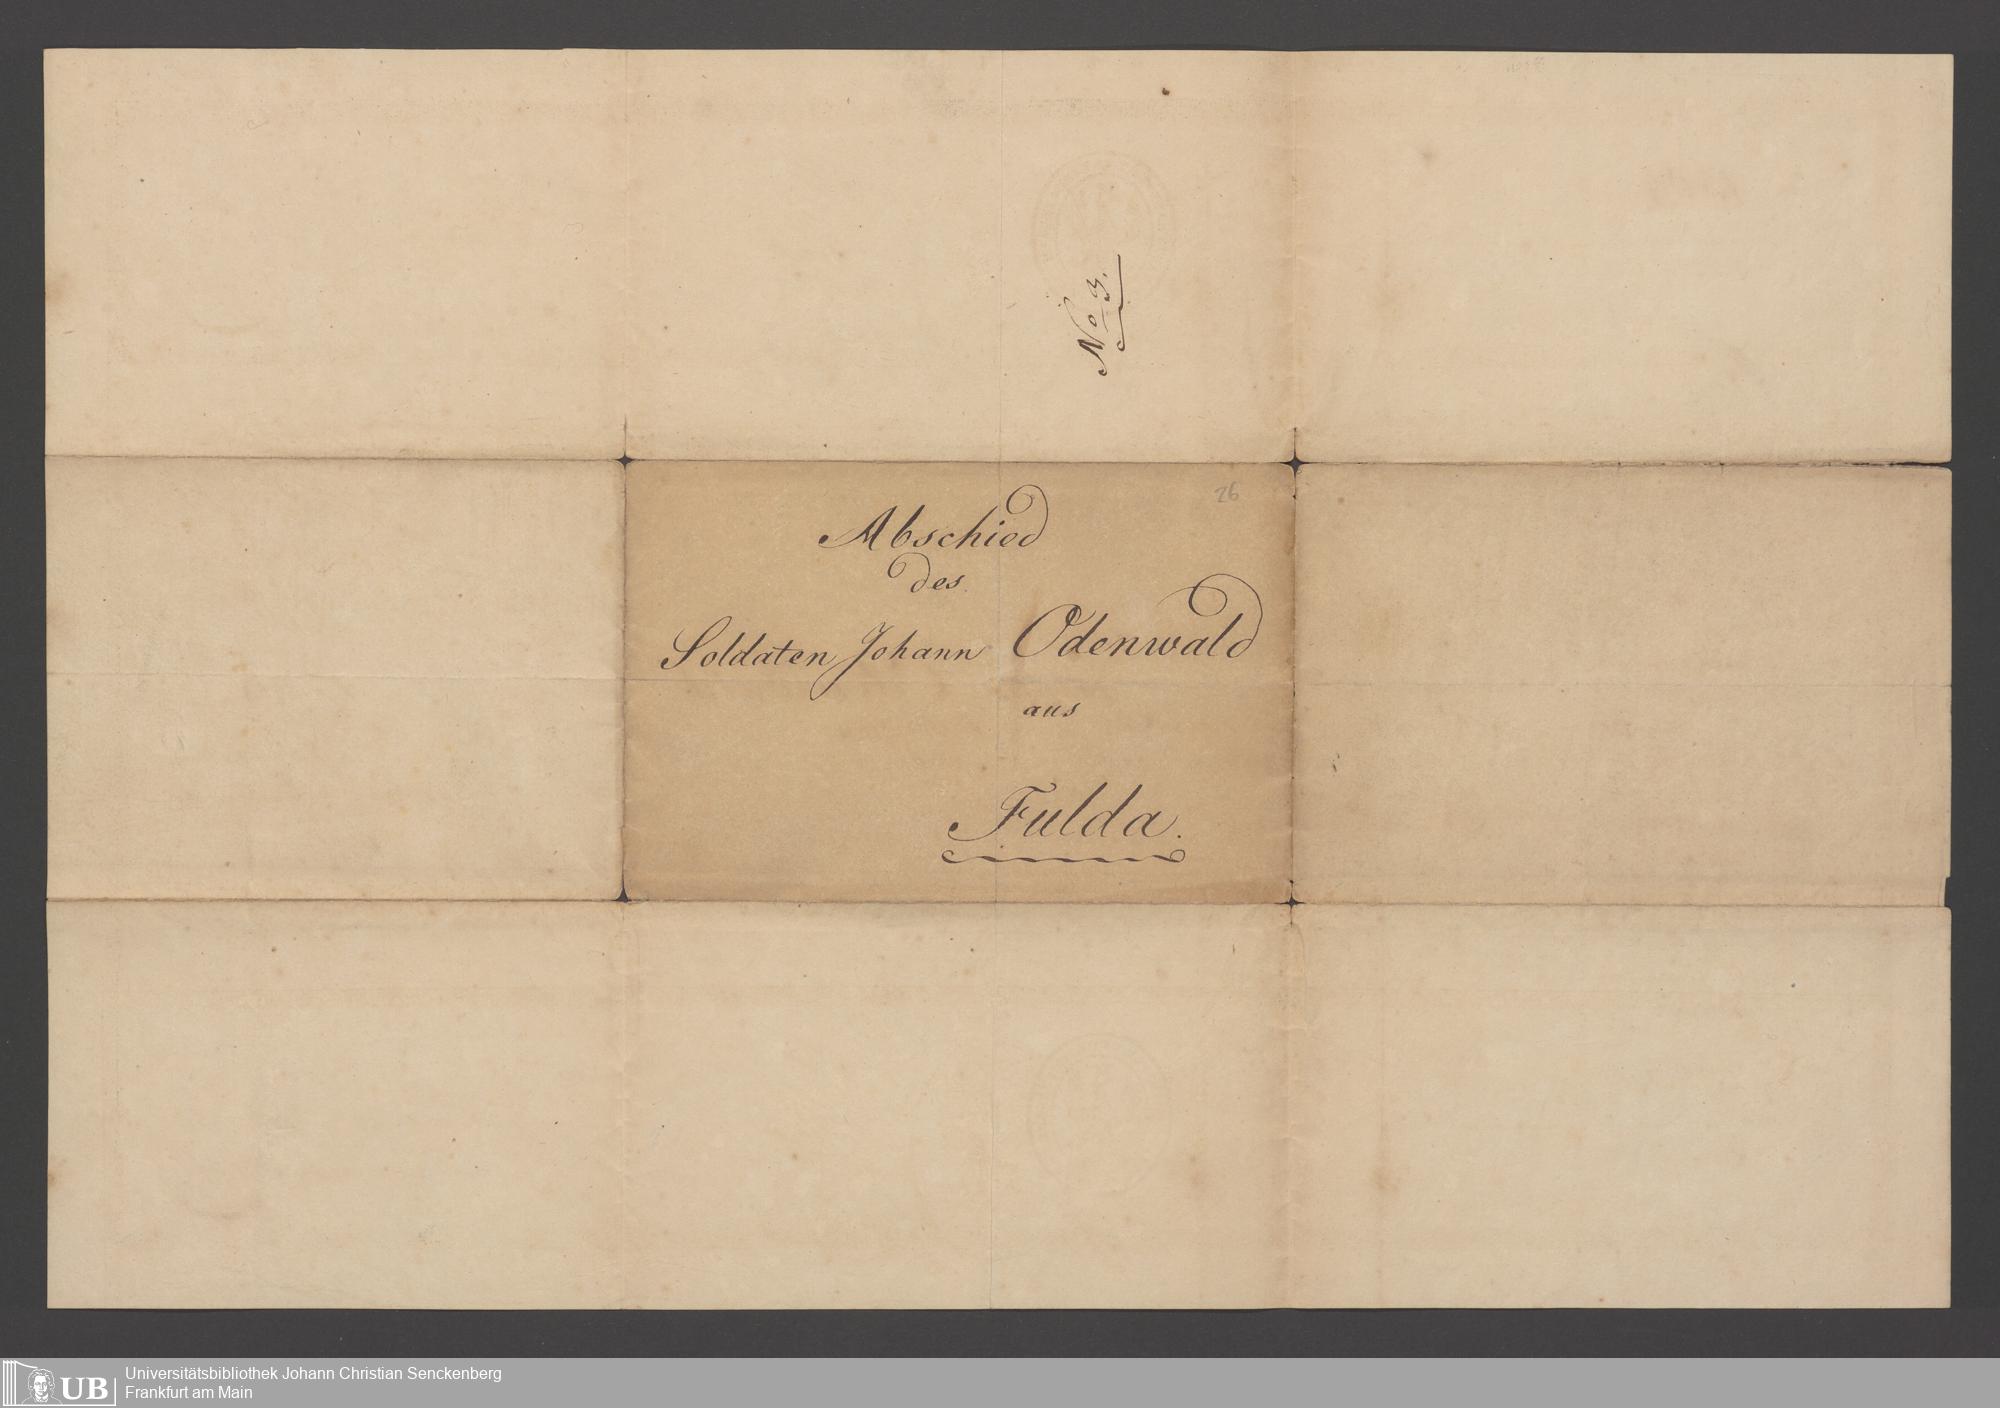 No 3.
26
Abschied
des
Soldaten Johann Odenwald
aus
Fulda.
UB
Universitätsbibliothek Johann Christian Senckenberg
Frankfurt am Main